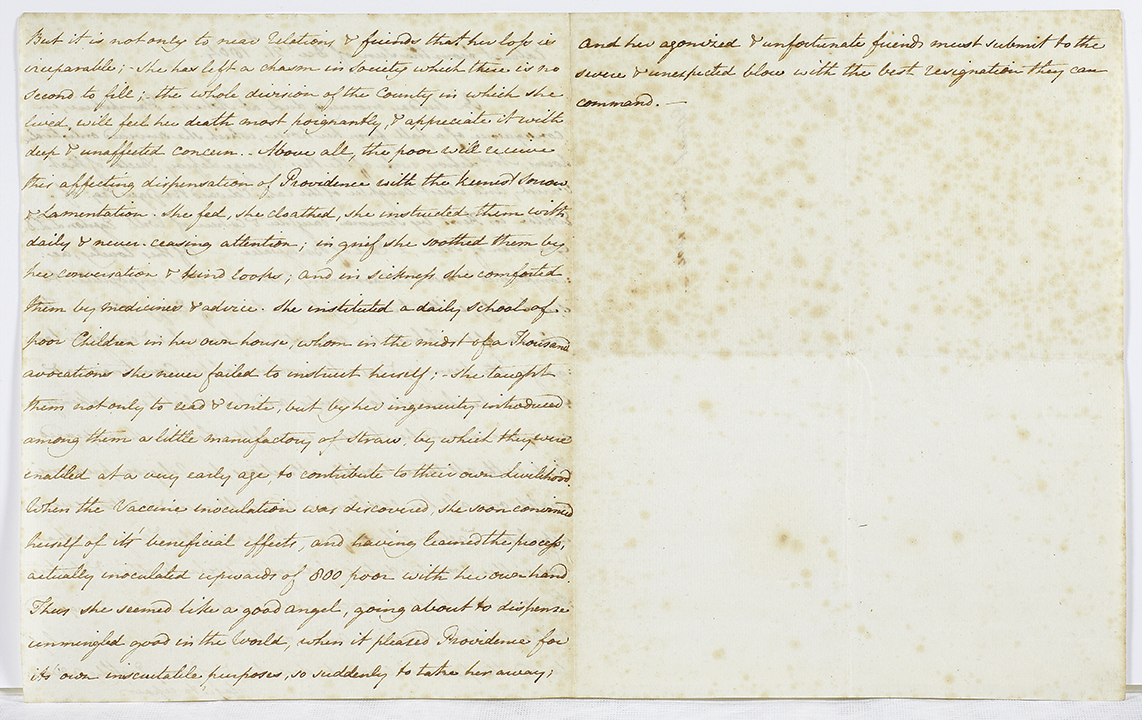 But it is not only to near relations & friends that her loss is
irreparable; - she has left a chasm in society which there is no
second to fill; - the whole division of the County in which she
lived, will feel her death most poignantly, & appreciate it with
deep & unaffected concern. - Above all, the poor will receive
this affecting dispensation of Providence with the keenest sorrow
& Lamentation. She fed, she cloathed, she instructed them with
daily & never-ceasing attention; in grief she soothed them by
her conversation & kind looks; and in sickness she comforted
them by medicines & advice. She instituted a daily school of
poor Children in her own house, whom in the midst of a Thousand
avocations she never failed to instruct herself; - she taught
them not only to read & write, but by her ingenuity introduced
among them a little manufactory of Straw, by which they were
enabled at a very early age, to contribute to their own livelihood.
When the Vaccine inoculation was discovered, she soon convinced
herself of it's beneficial effects, and having learned the process,
actually inoculated upwards of 800 poor with her own hand.
Thus she seemed like a good angel, going about to dispense
unmingled good in the World, when it pleased Providence for
its' own inscrutable purposes, so suddenly to take her away;
and her agonized & unfortunate friends must submit to the
severe & unexpected blow with the best resignation they can
command. —